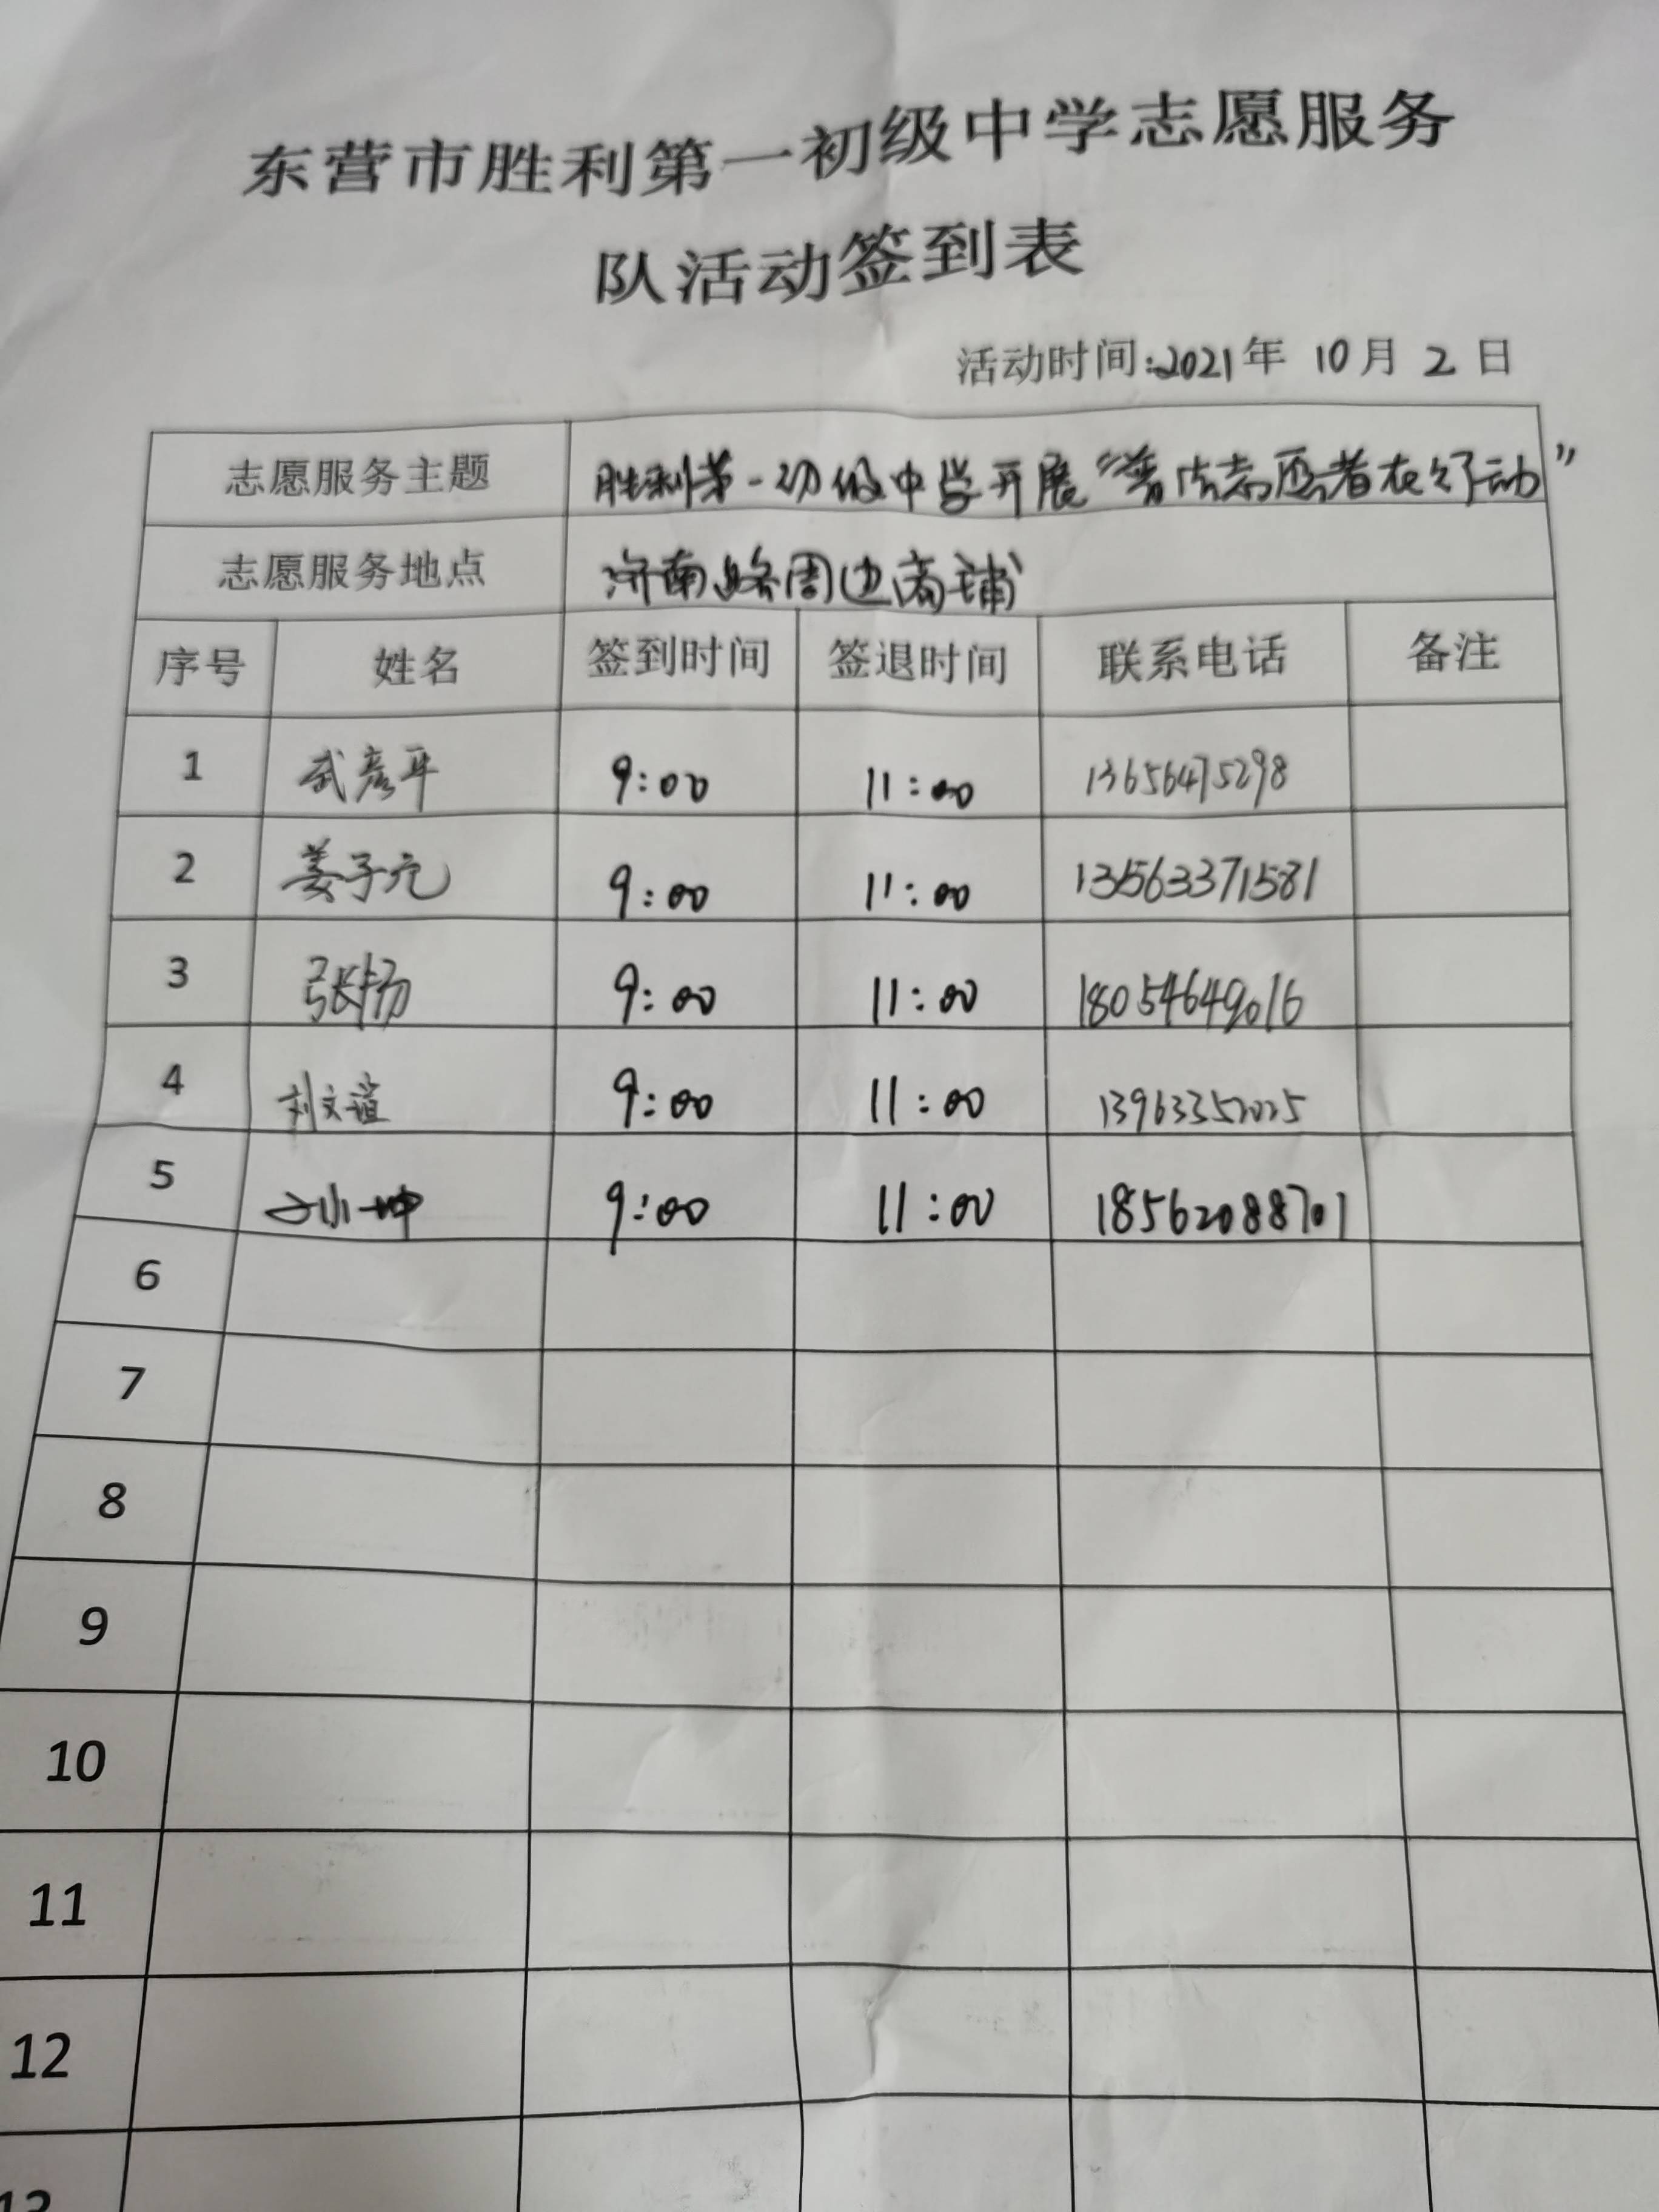 东营市胜利第一初级中学志愿服务
队活动签到表
活动时间:2021年 10月 2日
志愿服务主题 胜利第一初级中学开展“普法志愿者在行动”
志愿服务地点 济南路周边商铺
序号 姓名 签到时间 签退时间 联系电话 备注
1 武彦平 9:00 11:00 13656475298
2 姜子元 9:00 11:00 13563371581
3 张扬 9:00 11:00 18054649016
4 刘文谊 9:00 11:00 13963352025
5 9:00 11:00 18562088701
6
7
8
9
10
11
12
13